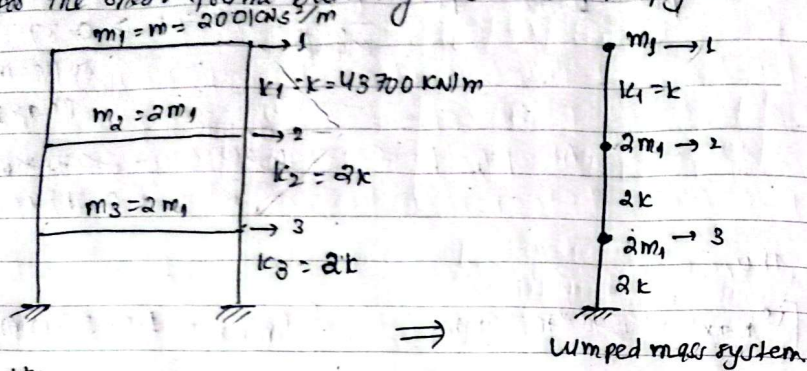 m1 = m = 200 KNS²/m
→ 1
K1 = K = 43700 KN/m
m2 = 2m1
→ 2
K2 = 2K
m3 = 2m1
→ 3
K3 = 2K
m1 → 1
K1 = K
2m1 → 2
2K
2m1 → 3
2K
⇒
Lumped mass system